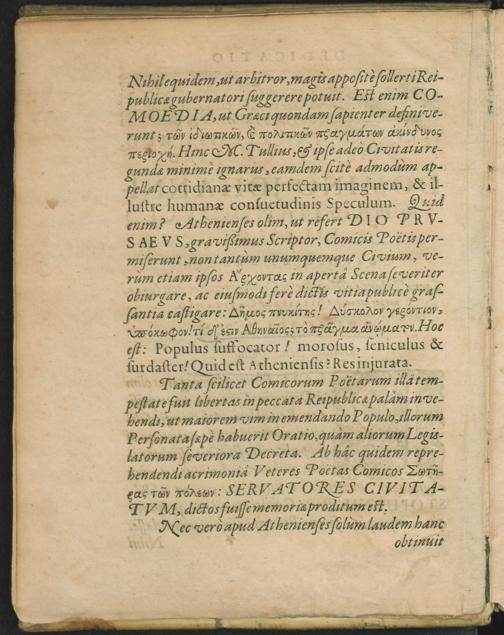 Nihil equidem, ut arbitror, magis appositè sollerti Rei-
publicæ gubernatori suggerere potuit. Est enim CO-
MOEDIA, ut Græci quondam sapienter definive-
runt; τῶν ἰδιωτικῶν, & πολιτικῶν πραγμάτων ἀκίνδυνος
περιοχή. Hinc M. Tullius, & ipse adeò Civitatis re-
gundæ minimè ignarus, eamdem scitè admodùm ap-
pellat cottidianæ vitæ perfectam imaginem, & il-
lustre humanæ consuetudinis Speculum. Quid
enim? Athenienses olim, ut refert DIO PRV-
SAEVS, gravissimus Scriptor, Comicis Poëtis per-
miserunt, non tantùm unumquemque Civium, ve-
rùm etiam ipsos Ἄρχοντας in apertâ Scena severiter
obiurgare, ac eiusmodi ferè dictis vitia publicè gras-
santia castigare: Δῆμος πνυκίτης! Δύσκολον γερόντιον,
ὑπόκωφον! τί δ' ἐστιν Ἀθηναῖος; τὸ πρᾶγμα ἀνώμοτον. Hoc
est: Populus suffocator! morosus, seniculus &
surdaster! Quid est Atheniensis? Res injurata.
Tanta scilicet Comicorum Poëtarum illâ tem-
pestate fuit libertas in peccata Reipublicæ palàm inve-
hendi, ut maiorem vim in emendando Populo, illorum
Personata sæpè habuerit Oratio, quàm aliorum Legis-
latorum severiora Decreta. Ab hâc quidem repre-
hendendi acrimoniâ Veteres Poëtas Comicos Σωτῆ-
ρας τῶν πόλεων: SERVATORES CIVITA-
TVM, dictos fuisse memoriæ proditum est.
Nec verò apud Athenienses solùm laudem hanc
obtinuit